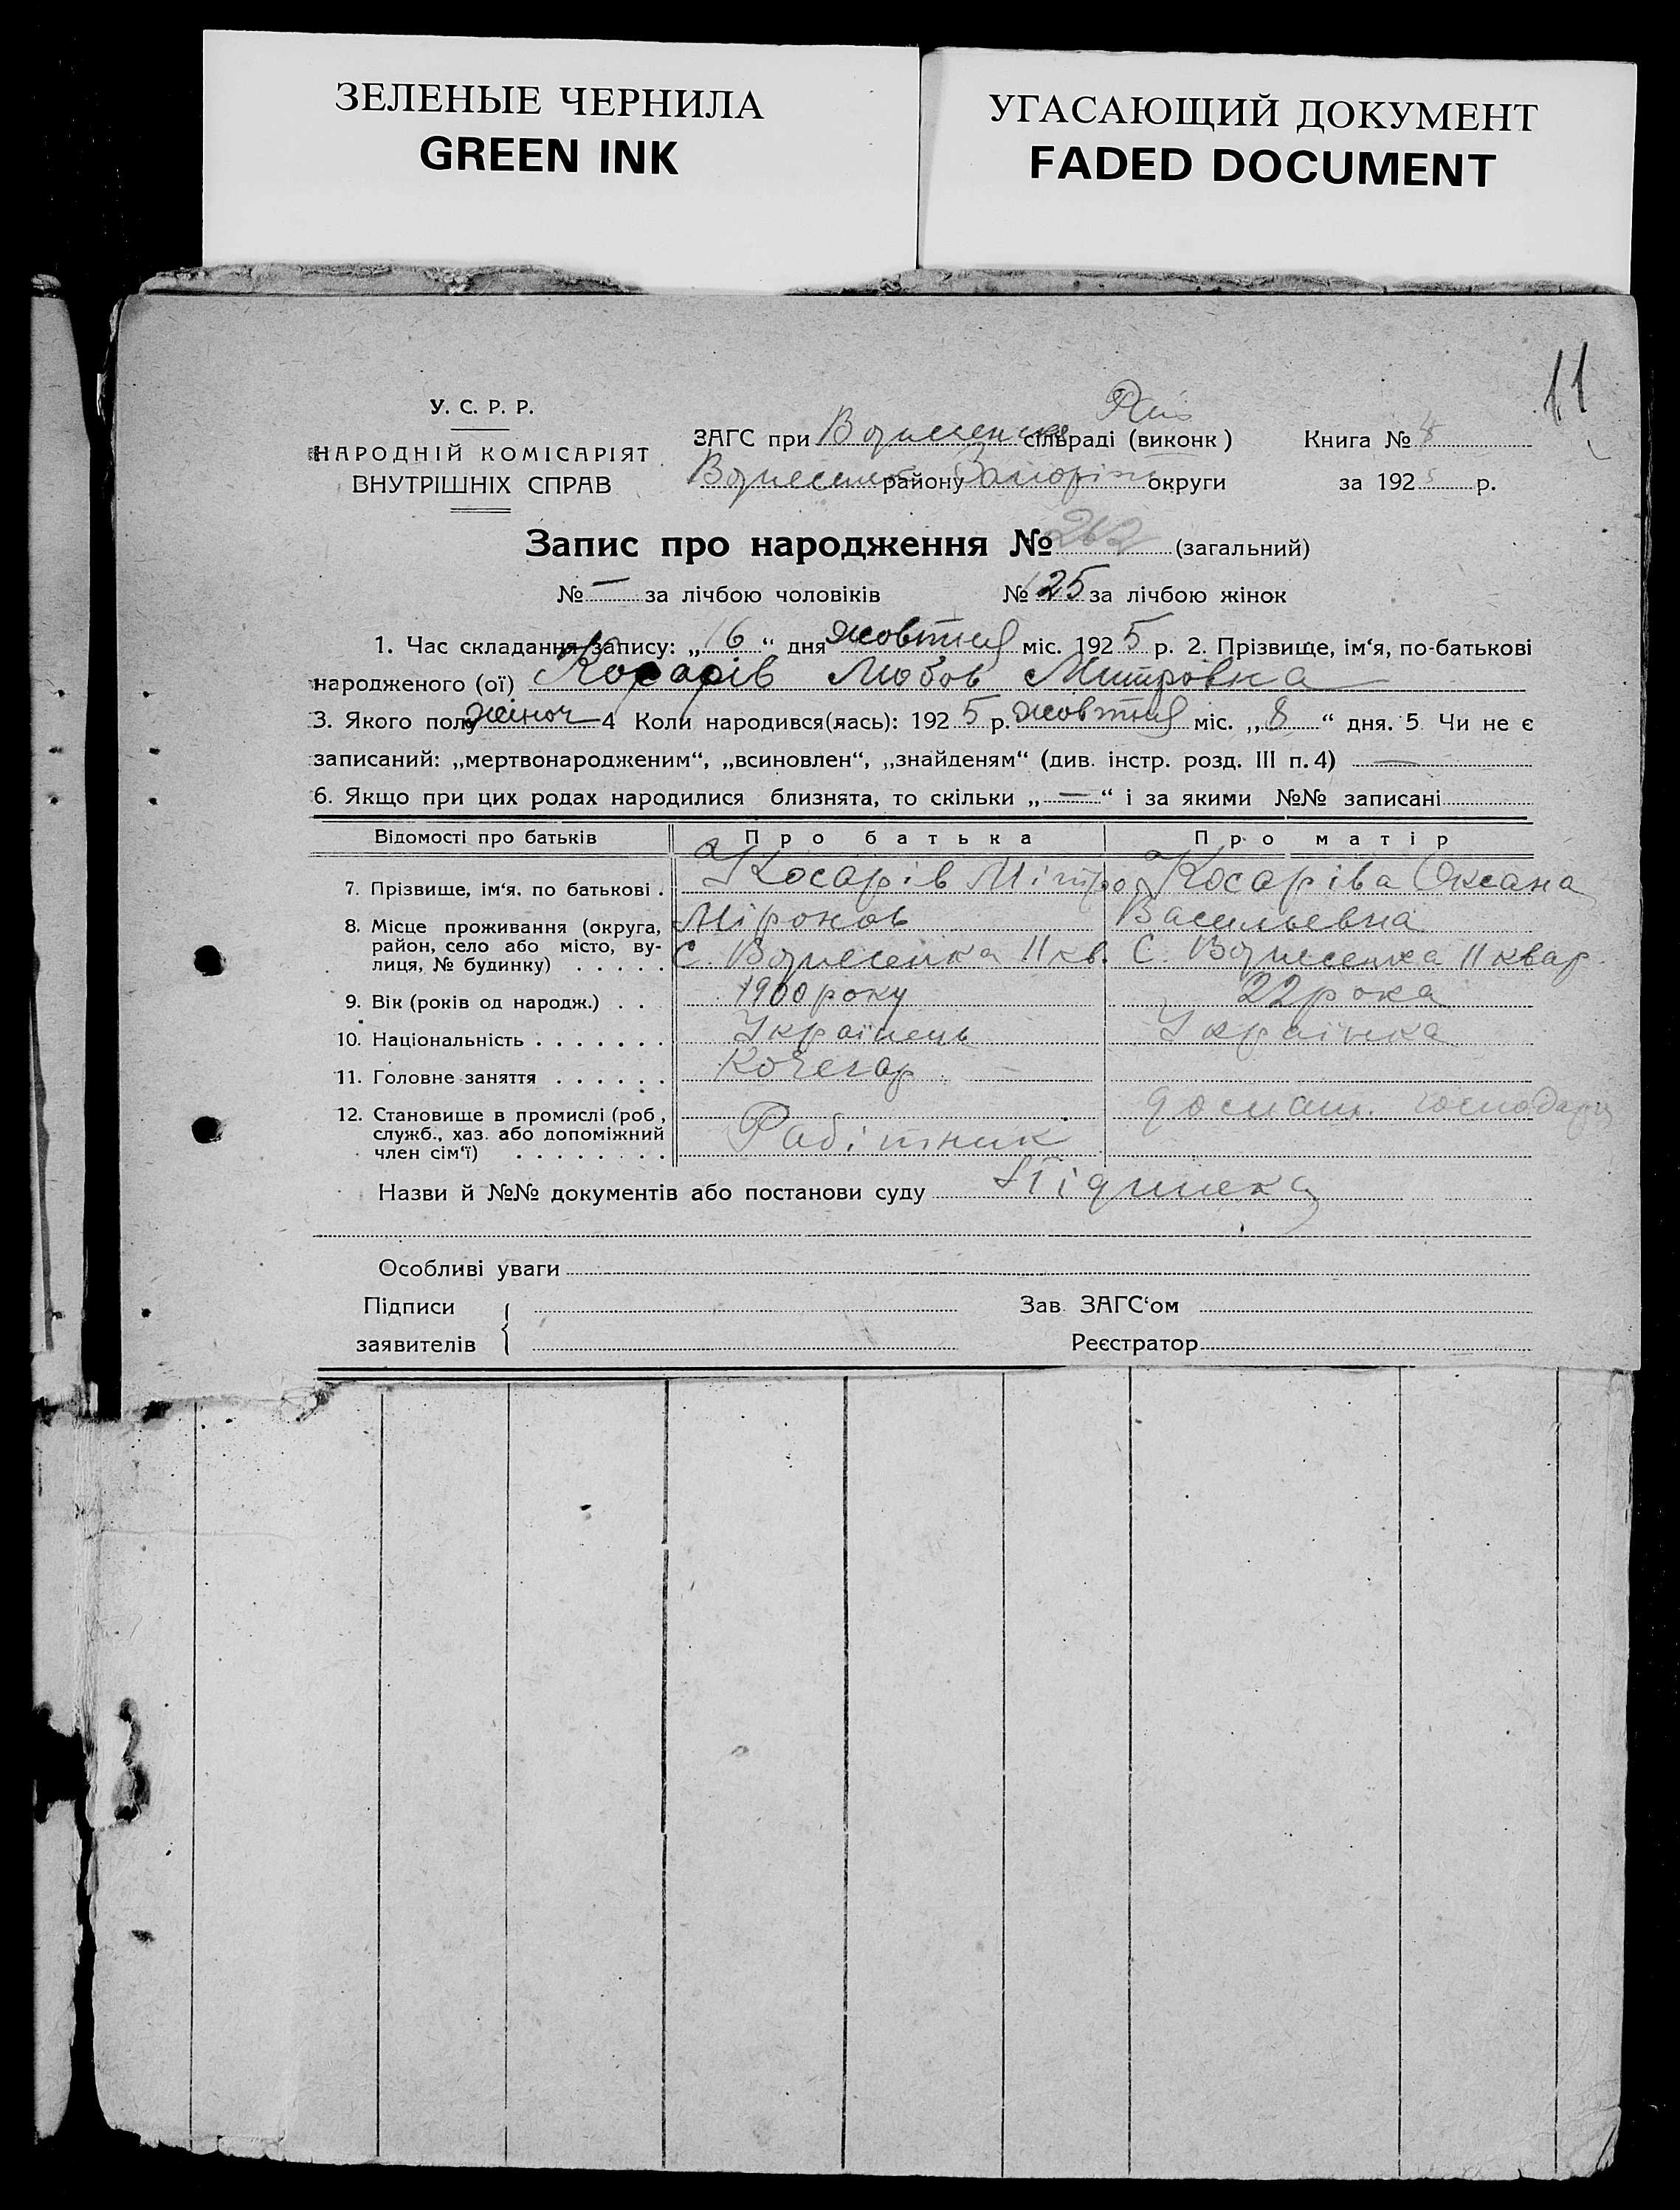 ЗЕЛЕНЫЕ ЧЕРНИЛА
GREEN INK
УГАСАЮЩИЙ ДОКУМЕНТ
FADED DOCUMENT
11
У. С. Р. Р.
НАРОДНІЙ КОМІСАРІЯТ
ВНУТРІШНІХ СПРАВ
ЗАГС при сільраді (виконк) Книга № 8
району округи за 1925 р.
Запис про народження № 262 (загальний)
№ — за лічбою чоловіків № 125 за лічбою жінок
1. Час складання запису: „16“ дня жовтня міс. 1925 р. 2. Прізвище, ім‘я, по-батькові
народженого (ої) Косарів Любов Митровна
3. Якого полу жіноч 4 Коли народився(лась): 1925 р. жовтня міс. „8“ дня. 5 Чи не є
записаний: „мертвонародженим“, „всиновлен“, „знайденям“ (див. інстр. розд. III п. 4) —
6. Якщо при цих родах народилися близнята, то скільки „—“ і за якими №№ записані
Відомості про батьків Про батька Про матір
7. Прізвище, ім‘я, по батькові . Косарів Мітро Косаріва Оксана
Міронов Васильевна
8. Місце проживання (округа, район, село або місто, вулиця, № будинку) . . . . . С. Вознесенка 11 кв. С. Вознесенка 11 квар.
9. Вік (років од народж.) . . 1900 року 22 рока
10. Національність . . . . . . . Українець Українка
11. Головне заняття . . . . . . Кочегар —
12. Становище в промислі (роб., служб., хаз. або допоміжний член сім‘ї) . . . . . . . . Рабітник
Назви й №№ документів або постанови суду
Особливі уваги
Підписи Зав. ЗАГС‘ом
заявителів Реєстратор